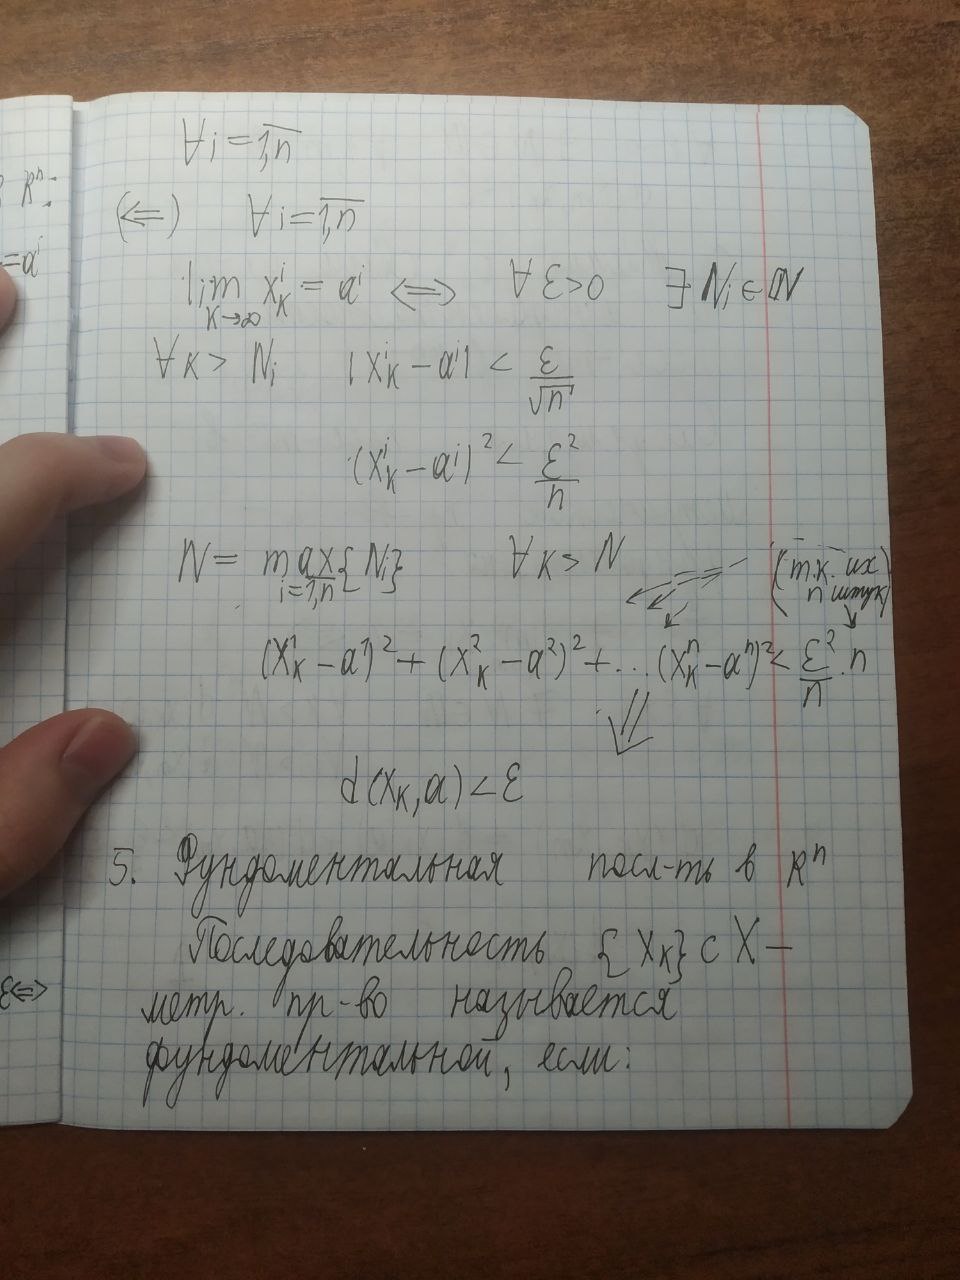 ∀i = \overline{1,n}
(⇐) ∀i = \overline{1,n}
lim_{k→∞} x_k^i = a^i ⟺ ∀ε>0 ∃ N_i ∈ ℕ
∀k > N_i |x_k^i − a^i| < \frac{ε}{\sqrt{n}}
(x_k^i − a^i)^2 < \frac{ε^2}{n}
N = max_{i=\overline{1,n}} {N_i} ∀k > N
(т.к. их
n штук)
(x_k^1 − a^1)^2 + (x_k^2 − a^2)^2 + … (x_k^n − a^n)^2 < \frac{ε^2}{n} · n
⇓
d(x_k, a) < ε
5. Фундоментальная посл-ть в R^n
Последовательность {x_k} ⊂ X —
метр. пр-во называется
фундоментальной, если:
R^n:
= a^i
⟺